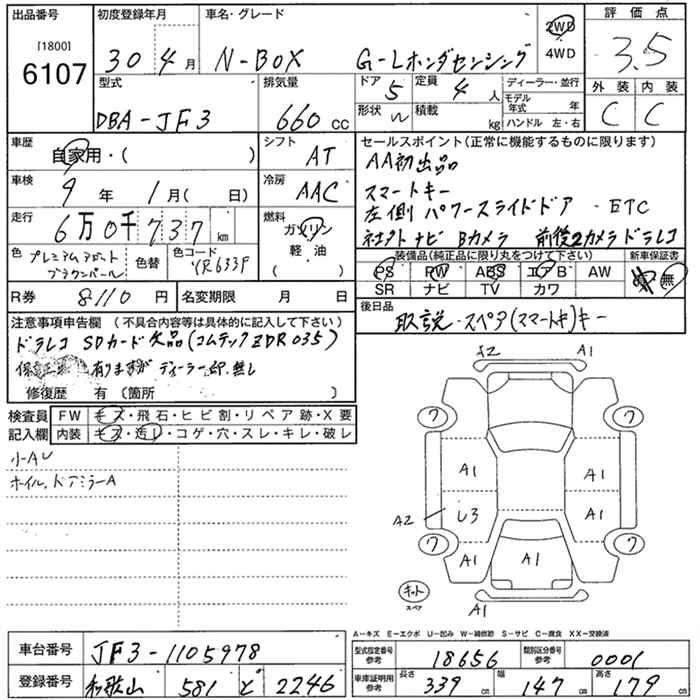 出品番号 初度登録年月 車名・グレード 2WD 評価点
[1800] 30 4月 N-BOX G-Lホンダセンシング 4WD 3.5
6107
型式 排気量 ドア 5 定員 4人 ディーラー・並行 外装 内装
DBA-JF3 660 CC 形状 積載 kg モデル年式 年 C C
ハンドル 左・右
車歴 自家用・( ) シフト AT セールスポイント(正常に機能するものに限ります)
AA初出品
車検 9年 1月( 日) 冷房 AAC スマートキー
左側 パワースライドドア ・ETC
走行 6万0千737 km 燃料 ガソリン 社外ナビ Bカメラ 前後2カメラドラレコ
軽・油
( )
色 プレミアム 色替 色コード YR633P 装備品(純正品に限り丸をつけて下さい) 新車保証書
ブラウンパール PS PW ABS エアB AW 有 無
SR ナビ TV カワ
R券 8110 円 名変期限 月 日 後日品
取説・スペア(スマートキー)キー
注意事項申告欄(不具合内容等は具体的に記入して下さい)
ドラレコ SDカード欠品(コムテックZDR035)
保証書 有りますが ディーラー印、無し
修復歴 有(箇所 )
検査員 FW キズ・飛石・ヒビ割・リペア跡・X要
記入欄 内装 キズ・汚レ・コゲ・穴・スレ・キレ・破レ
小AU
ホイル、ドアミラーA
X2 A1
ワ ワ
A1 A1
A2 U3 A1
ワ ワ
A1 A1 A1
キット
スペア
A1
A-キズ E-エクボ U-凹み W-補修跡 S-サビ C-腐食 XX-交換済
車台番号 JF3-1105978 型式指定番号 参考 18656 類別区分番号 参考 0001
登録番号 和歌山 581 と 2246 車庫証明用 参考 長さ 339 cm 幅 147 cm 高さ 179 cm